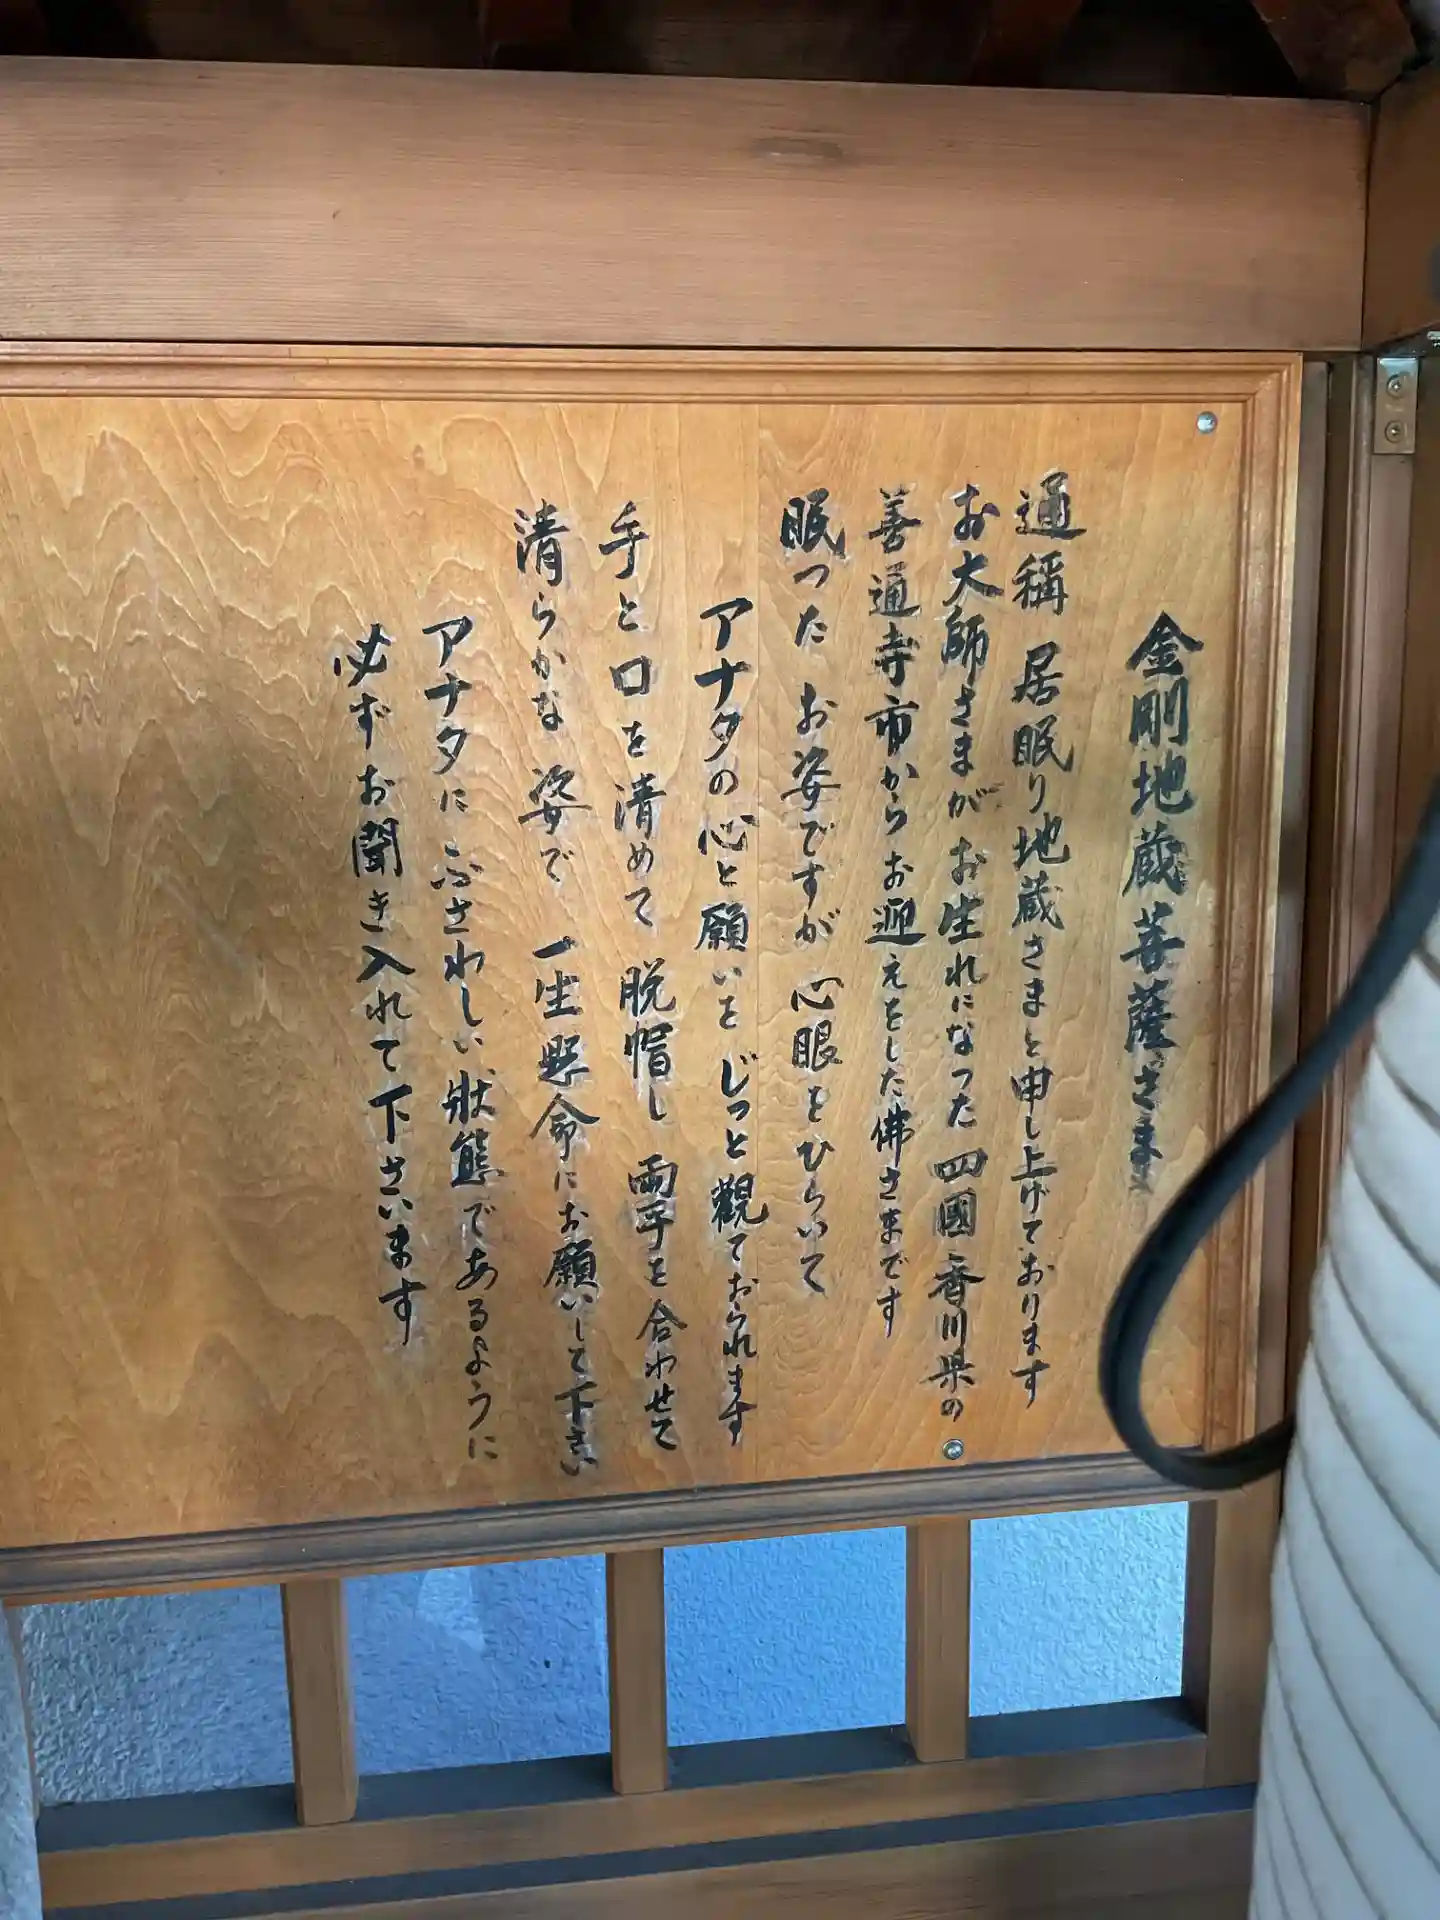 金剛地蔵菩薩さま
通稱 居眠り地蔵さまと申し上げております
お大師さまがお生れになった四國香川県の
善通寺市からお迎えをした佛さまです
眠った お姿ですが 心眼をひらいて
アナタの心と願いを じっと観ておられます
手と口を清めて 脱帽し 両手を合わせて
清らかな姿で 一生懸命にお願いして下さい
アナタにふさわしい状態であるように
必ずお聞き入れて下さいます